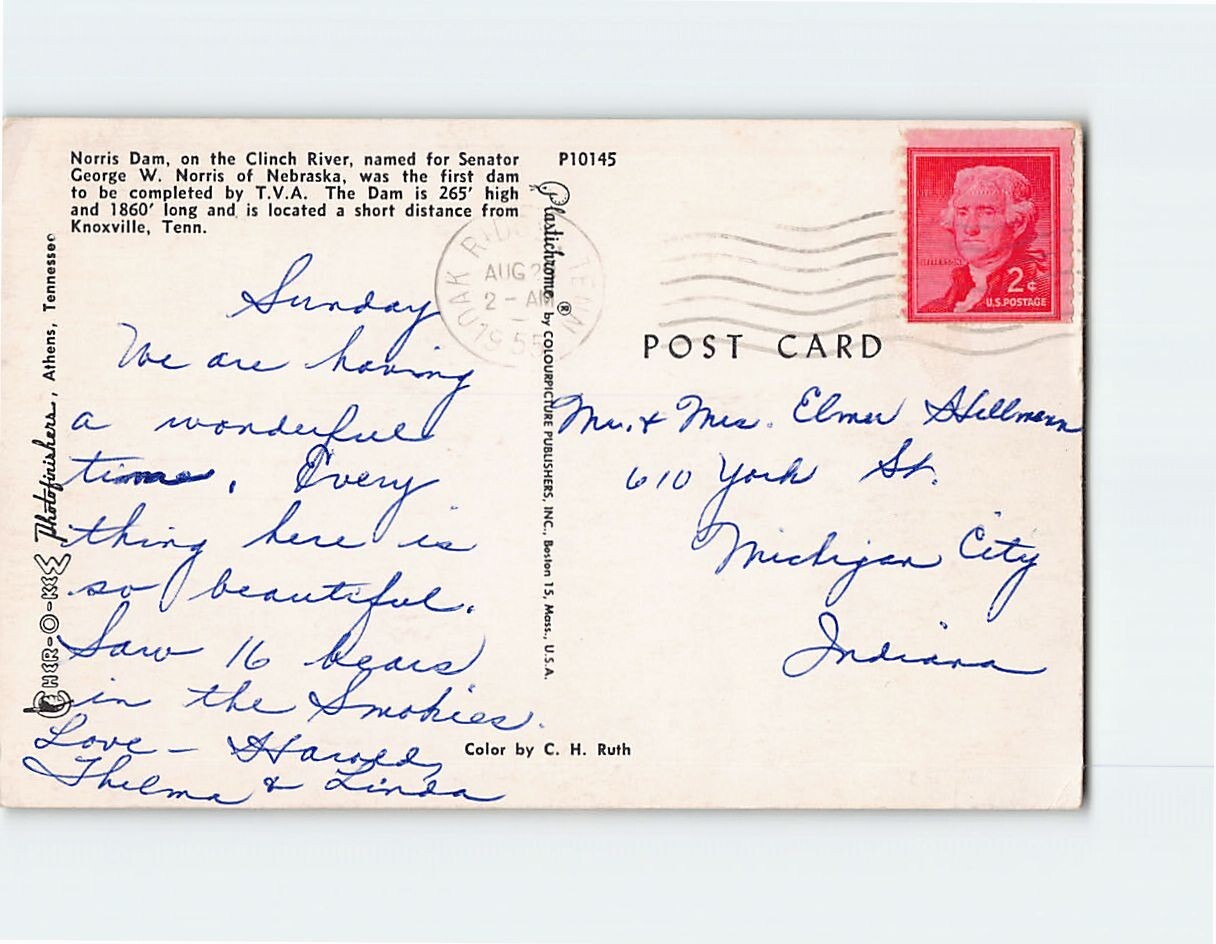 Norris Dam, on the Clinch River, named for Senator
George W. Norris of Nebraska, was the first dam
to be completed by T.V.A. The Dam is 265' high
and 1860' long and is located a short distance from
Knoxville, Tenn.
P10145
OAK RIDGE TENN
AUG 2
2 - AM
1955
JEFFERSON
2¢
U.S. POSTAGE
POST CARD
Sunday
We are having
a wonderful
time. Every
thing here is
so beautiful.
Saw 16 bears
in the Smokies.
Love - Harold,
Thelma & Linda
Mr. & Mrs. Elmer Hellmann
610 York St.
Michigan City
Indiana
CHER-O-KEE Photofinishers, Athens, Tennessee
Plastichrome ® by COLOURPICTURE PUBLISHERS, INC., Boston 15, Mass., U.S.A.
Color by C. H. Ruth